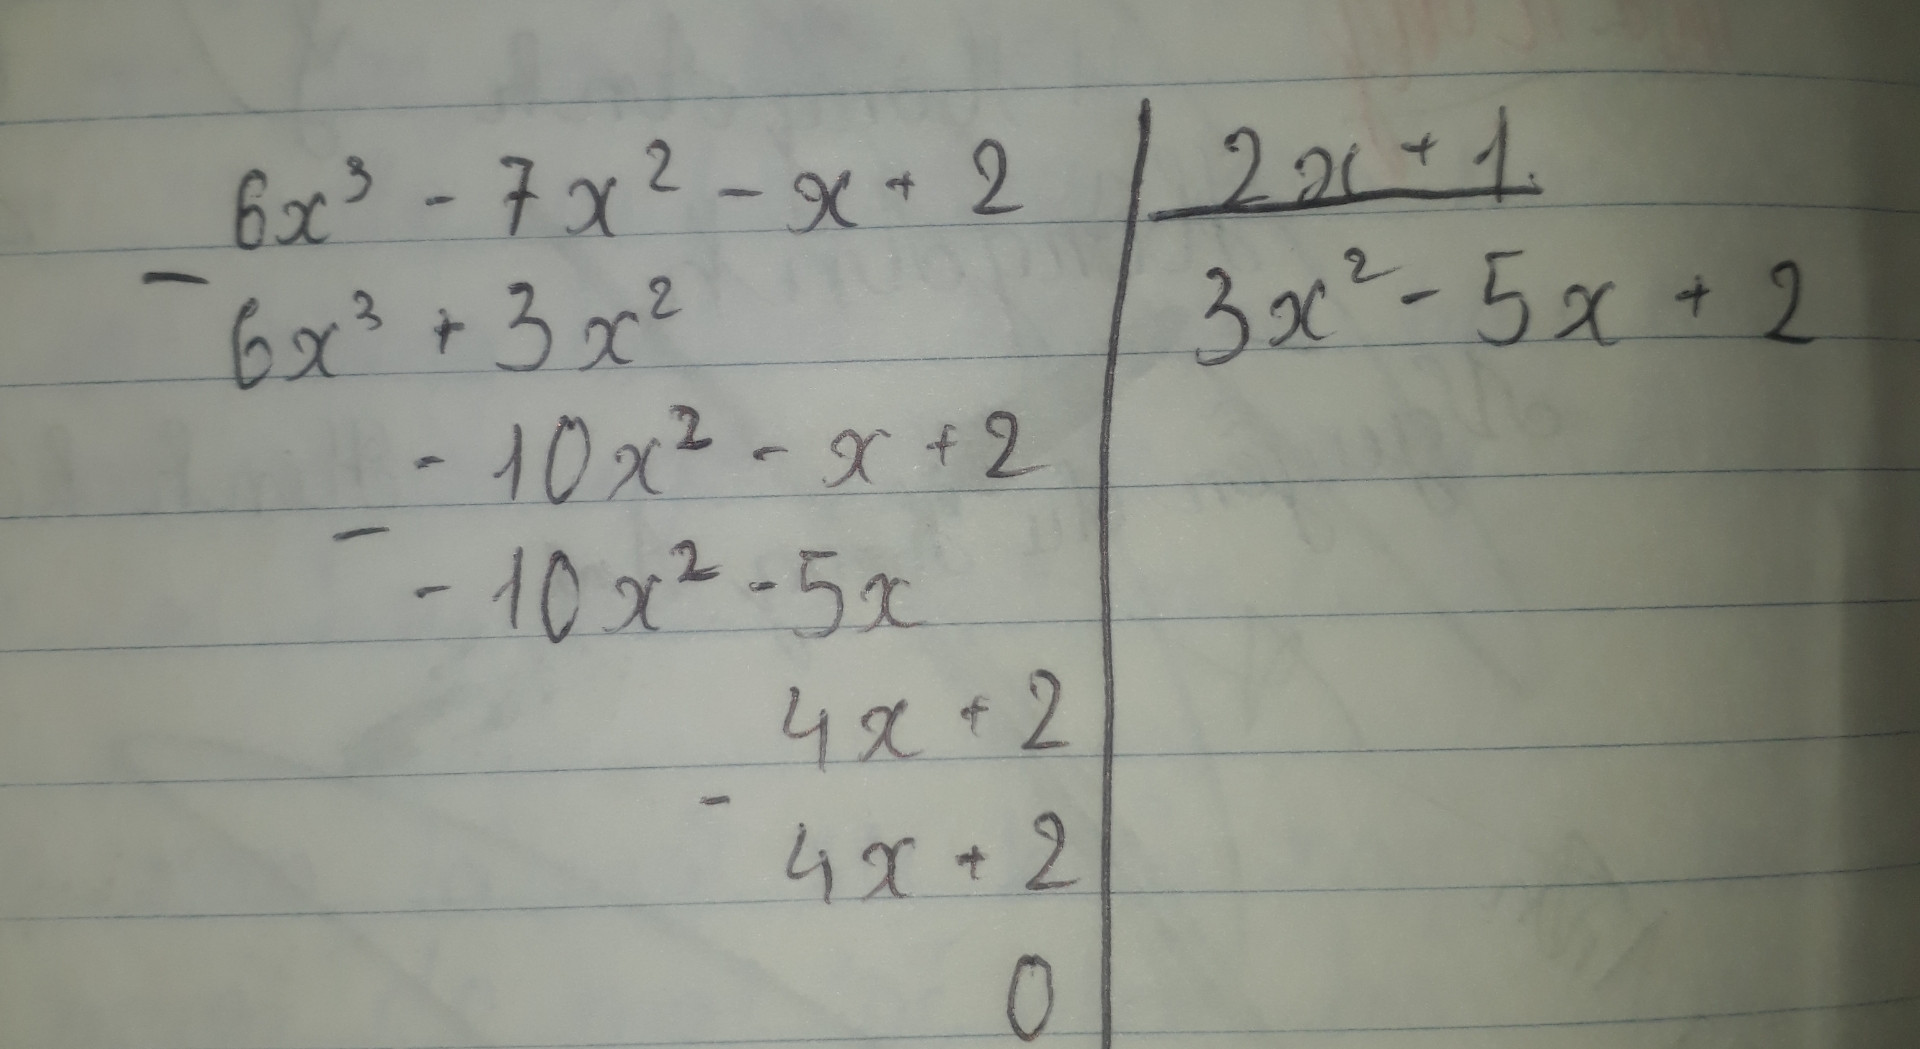 6x³ - 7x² - x + 2 | 2x + 1
- 
6x³ + 3x² | 3x² - 5x + 2
- 10x² - x + 2
-
- 10x² - 5x
4x + 2
-
4x + 2
0